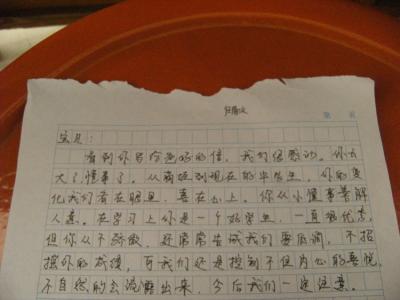 宝贝：
看到你写给爸妈的信，我们很感动。你长
大了懂事了。从萌娃到现在的毕业生，你的变
化我们看在眼里，喜在心上。你从小懂事善解
人意。在学习上你是一个好学生，一直很优秀，
但你从不骄傲，还常常告诫我们要低调，不招
摇你的成绩，可我们还是控制不住内心的喜悦，
不自然的会流露出来，今后我们一定注意。